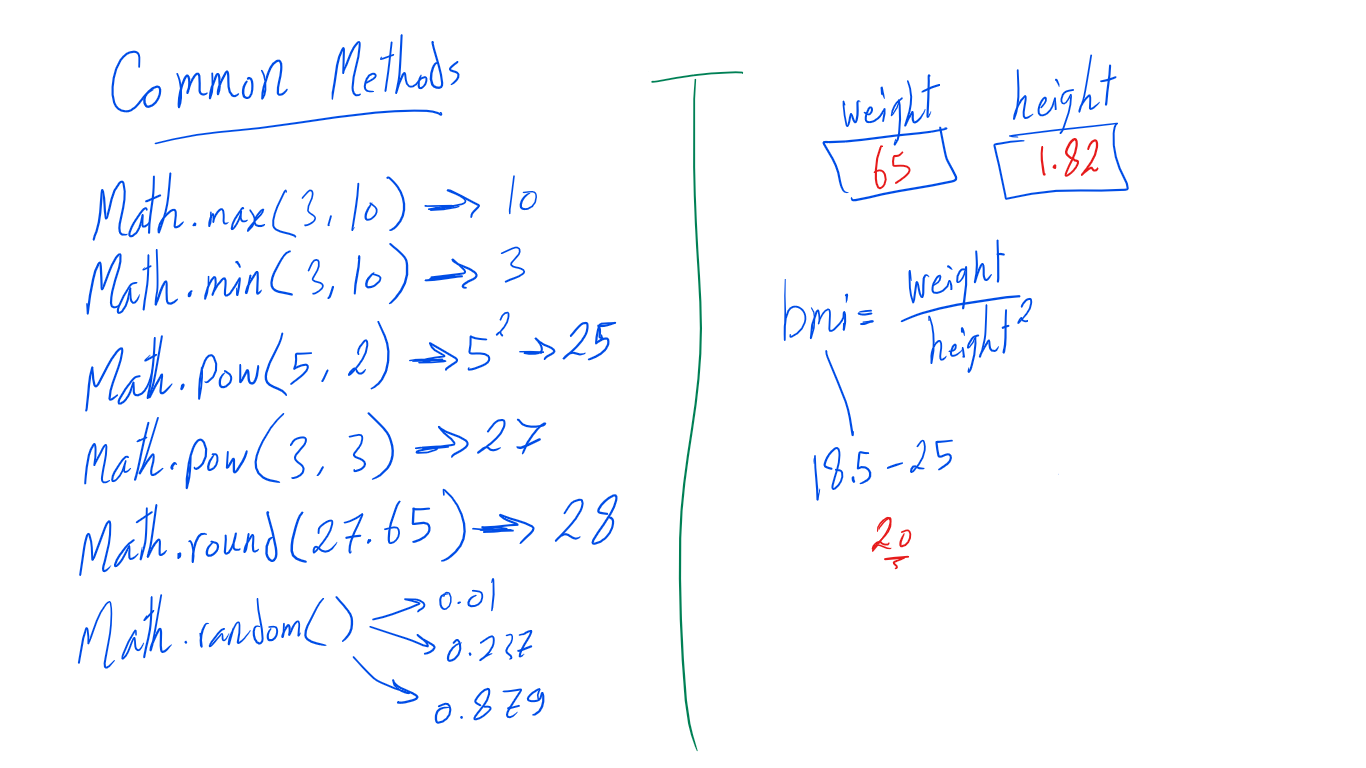 Common Methods
Math.max(3, 10) → 10
Math.min(3, 10) → 3
Math.pow(5, 2) → 5² → 25
Math.pow(3, 3) → 27
Math.round(27.65) → 28
Math.random() → 0.01
→ 0.237
→ 0.879
weight height
65 1.82
bmi = weight
height²
18.5 - 25
20